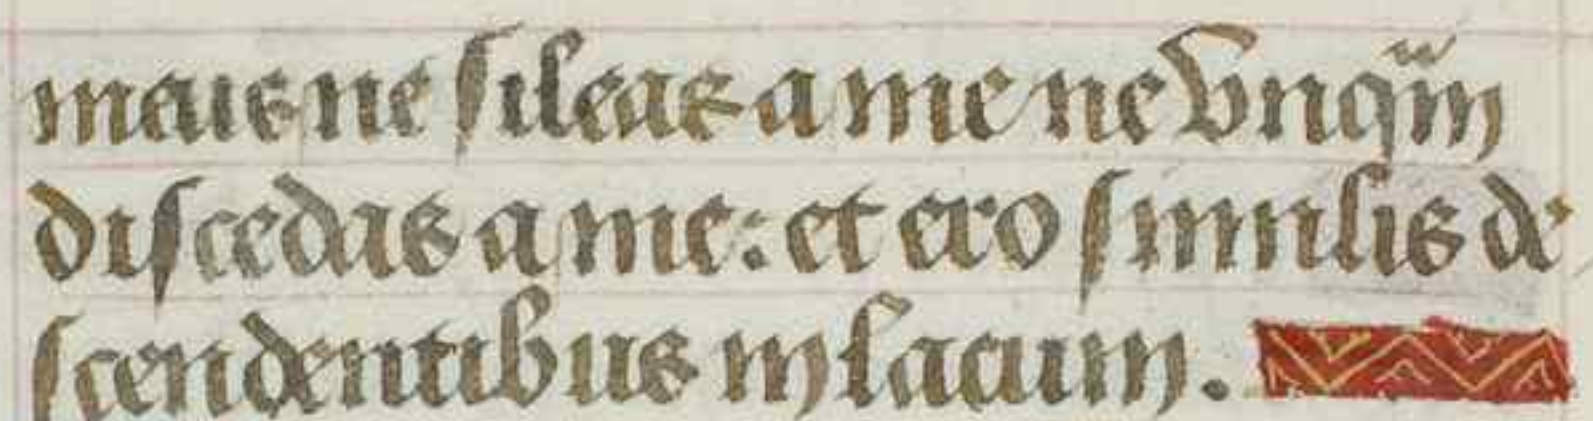 meus ne sileas a me ne vnqͣm
discedas a me: et ero similis de
scendentibus in lacum.